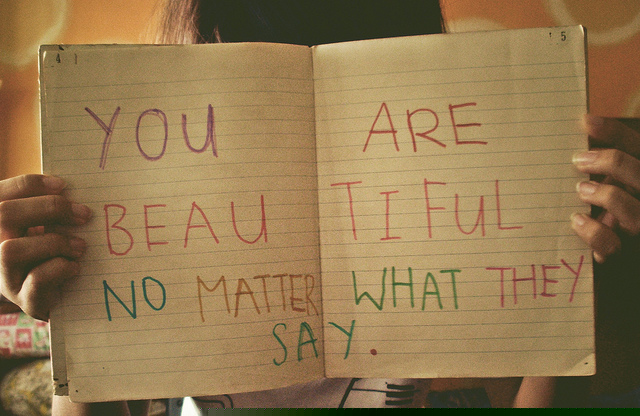 41
15
YOU ARE
BEAUTIFUL
NO MATTER WHAT THEY
SAY.